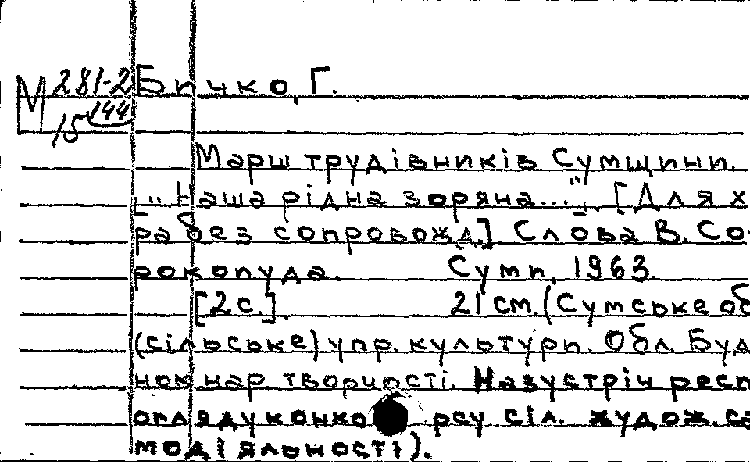 М 281-2 Бичко, Г.
15 144
Марш трудівників Сумщини.
[„Наша рідна зоряна..."]. [Для х
ра без сопровожд.] Слова В. Со-
рокопуда. Суми, 1963.
[2 с.]. 21 см. (Сумське об
(сільське) упр. культури. Обл. Буд
нок нар. творчості. Назустріч респ
огляду конко рсу сіл. худож. са
модіяльності).